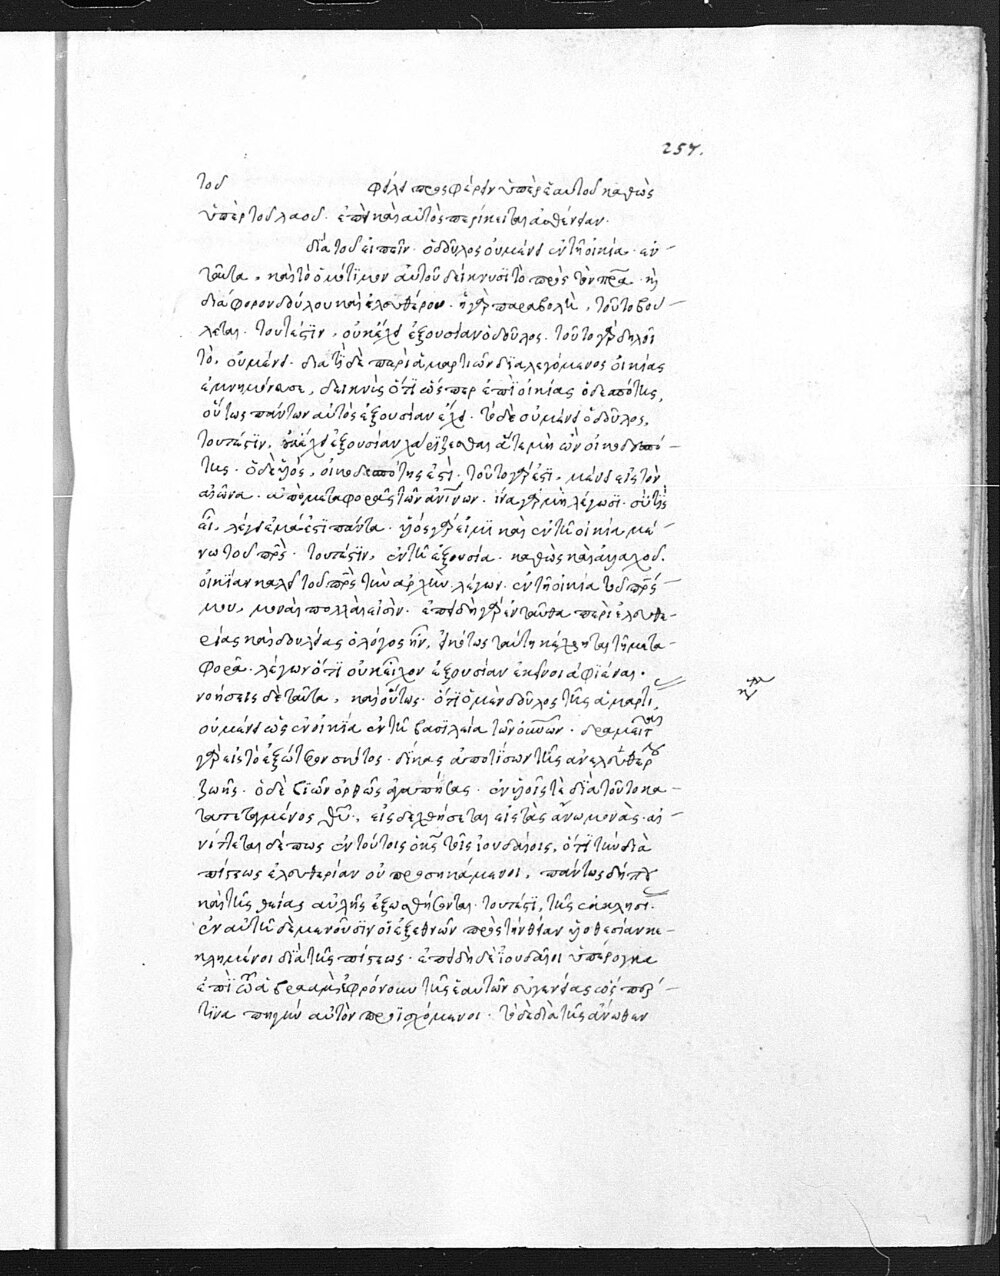 257.
τοῦ ὀφείλει προσφέρειν ὑπὲρ ἑαυτοῦ καθὼς
ὑπὲρ τοῦ λαοῦ. ἐπεὶ καὶ αὐτὸς περίκειται ἀσθένειαν.
διὰ τοῦ εἰπεῖν. ὁ δοῦλος οὐ μένει ἐν τῇ οἰκία. ἐν-
ταῦτα, καὶ τὸ ὁμότιμον αὐτοῦ δείκνυσι τὸ πρὸς τὸν πρ̅α. ἡ
διάφορον δούλου καὶ ἐλευθέρου. ἡ γὰρ παραβολὴ, τοῦτο βού-
λεται. τουτέστιν, οὐκ ἔχει ἐξουσίαν ὁ δοῦλος. τοῦτο γὰρ δηλοῖ
τὸ, οὐ μένει. διατί δὲ περὶ ἁμαρτιῶν διαλεγόμενος οἰκίας
ἐμνημόνευσε, δεικνὺς ὅτι ὥσπερ ἐπὶ οἰκίας ὁ δεσπότης,
οὕτως πάντων αὐτὸς ἐξουσίαν ἔχει. τὸ δὲ οὐ μένει ὁ δοῦλος,
τουτέστιν, οὐκ ἔχει ἐξουσίαν χαρίζεσθαι ἅτε μὴ ὢν οἰκοδεσπό-
της. ὁ δὲ υἱὸς, οἰκοδεσπότης ἐστὶ. τοῦτο γάρ ἐστι, μένει εἰς τὸν
αἰῶνα. ἀπὸ μεταφορᾶς τῶν ἀν̅ίνων. ἵνα γὰρ μὴ λέγωσι. σὺ τίς
εἶ, λέγει ἐμά ἐστι πάντα. υἱὸς γάρ εἰμι καὶ ἐν τῇ οἰκία μέ-
νω τοῦ πρ̅ς. τουτέστιν, ἐν τῇ ἐξουσία. καθὼς καὶ ἀλλαχοῦ.
οἰκίαν καλεῖ τοῦ πρ̅ς τὴν ἀρχὴν λέγων. ἐν τῇ οἰκία τοῦ πρ̅ς
μου, μοναὶ πολλαὶ εἰσὶν. ἐπειδὴ γὰρ ἐνταῦθα περὶ ἐλευθε-
ρίας καὶ δουλείας ὁ λόγος ἦν, εἰκότως ταύτη κέχρηται τῇ μετα-
φορᾶ. λέγων ὅτι οὐκ εἶχον ἐξουσίαν ἐκεῖνοι ἀφιέναι.
νοήσεις δὲ ταῦτα, καὶ οὕτως. ὅτι ὁ μὲν δοῦλος τῆς ἁμαρτί,
οὐ μένει ὡς ἐν οἰκία ἐν τῇ βασιλεία τῶν οὐ̅νῶν. δραμεῖται
γὰρ εἰς τὸ ἐξώτερον σκότος. δίκας ἀποτίσων τῆς ἀνελευθέρου
ζωῆς. ὁ δὲ ζῶν ὀρθῶς ἀγαπήσας. ἐν υἱοῖς τε διὰ τοῦτο κα-
τατεταγμένος θῦ̅, εἰσδεχθήσεται εἰς τὰς ἄνω μονὰς. αἰ-
νίττεται δέ πως ἐν τούτοις ὁ κ̅ς τοῖς ἰουδαίοις, ὅτι τὴν διὰ
πίστεως ἐλευθερίαν οὐ προσηκάμενοι, πάντως δήπου
καὶ τῆς θείας αὐλῆς ἐξωσθήσονται. τουτέστι, τῆς ἐκκλησί.
ἐν αὐτῇ δὲ μενοῦσιν οἱ ἐξ ἐθνῶν πρὸς τὴν θείαν υἱοθεσίαν κε-
κλημένοι διὰ τῆς πίστεως. ἐπειδὴ δὲ ἰουδαῖοι ὑπέρογκα
ἐπὶ τῷ ἀβραὰμ ἐφρόνουν τῆς ἑαυτῶν συγγενείας ὡς
τινα πηγὴν αὐτὸν προϊσχόμενοι. τὸ δὲ διὰ τῆς ἄνωθεν